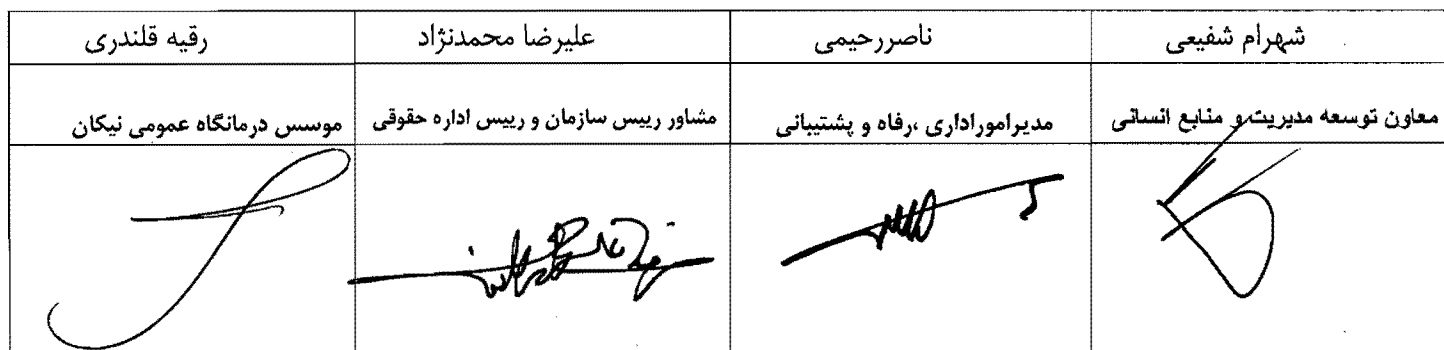 شهرام شفیعی
ناصررحیمی
علیرضا محمدنژاد
رقیه قلندری
معاون توسعه مدیریت و منابع انسانی
مدیراموراداری ،رفاه و پشتیبانی
مشاور رییس سازمان و رییس اداره حقوقی
موسس درمانگاه عمومی نیکان